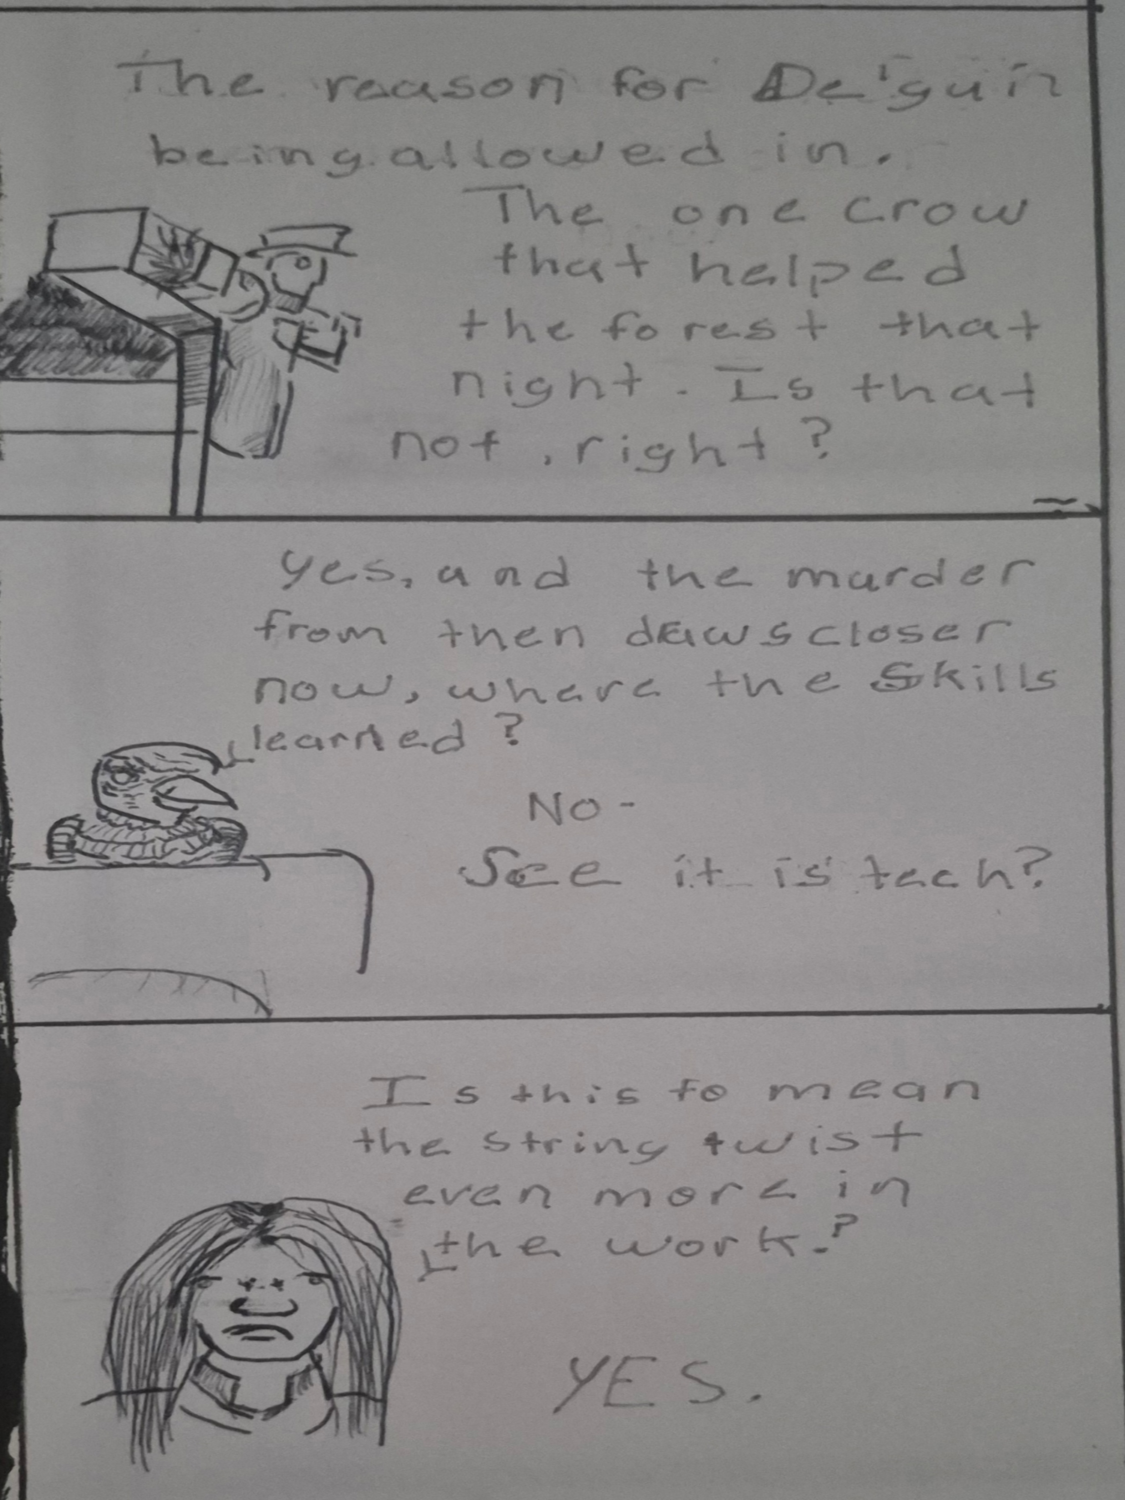 The reason for De'guin
being allowed in.
The one crow
that helped
the forest that
night. Is that
not, right?
Yes, and the murder
from then daws closer
now, where the Skills
learned?
No-
See it is tech?
Is this to mean
the string twist
even more in
the work.?
YES.